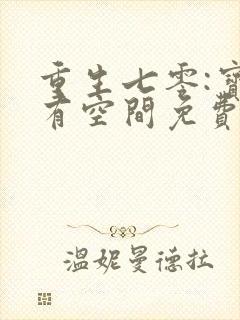 重生七零:寶
有空間免費
溫妮曼德拉